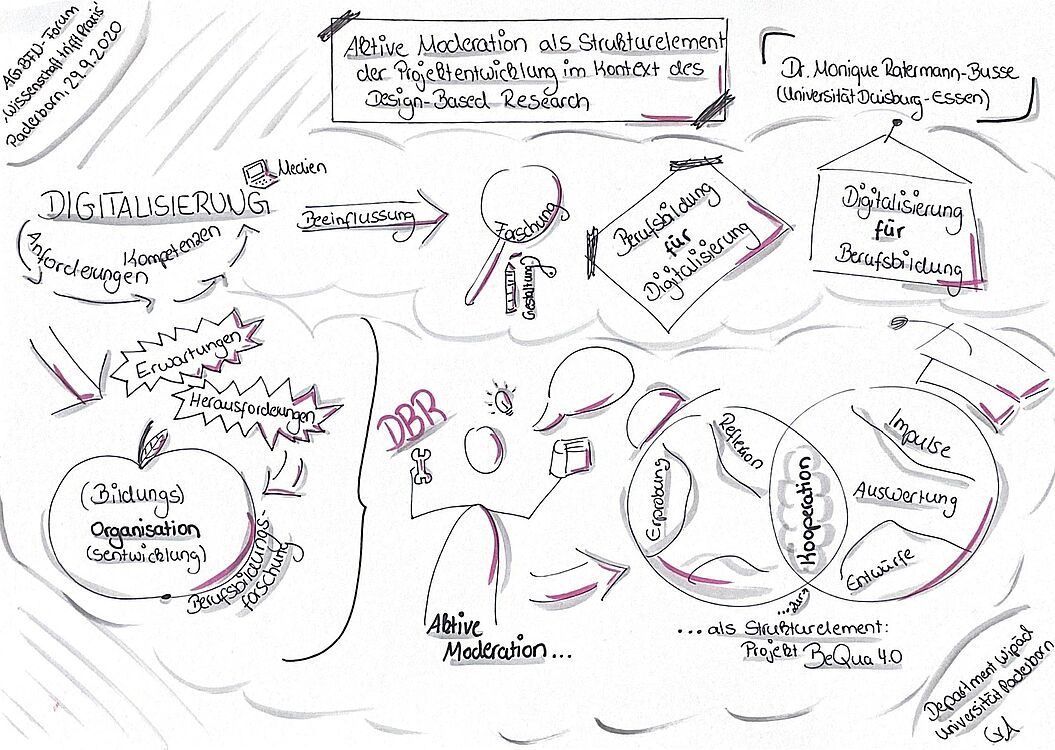 AG BFN-Forum
"Wissenschaft trifft Praxis"
Paderborn, 29.9.2020
Aktive Moderation als Strukturelement
der Projektentwicklung im Kontext des
Design-Based Research
Dr. Monique Ratermann-Busse
(Universität Duisburg-Essen)
DIGITALISIERUNG
Medien
Anforderungen
Kompetenzen
Beeinflussung
Forschung
Gestaltung
Berufsbildung
für
Digitalisierung
Digitalisierung
für
Berufsbildung
Erwartungen
Herausforderungen
(Bildungs)
Organisation
(sentwicklung)
Berufsbildungs-
forschung
DBR
Aktive
Moderation...
Erprobung
Reflexion
Kooperation
Impulse
Auswertung
Entwürfe
...als Strukturelement:
Projekt BeQua 4.0
Department Wipäd
Universität Paderborn